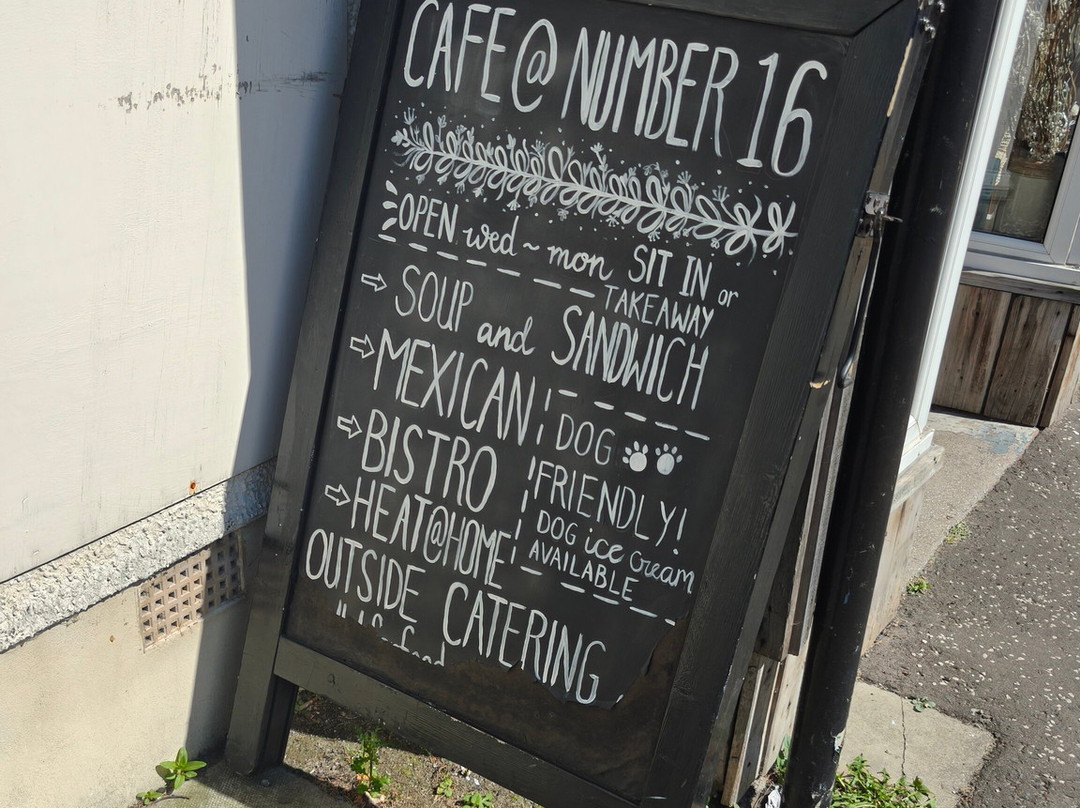 CAFE @ NUMBER 16
OPEN wed ~ mon SIT IN or
TAKEAWAY
⇨ SOUP and SANDWICH
⇨ MEXICAN
⇨ BISTRO
⇨ HEAT@HOME
DOG
FRIENDLY!
DOG ice cream
AVAILABLE
OUTSIDE CATERING
food